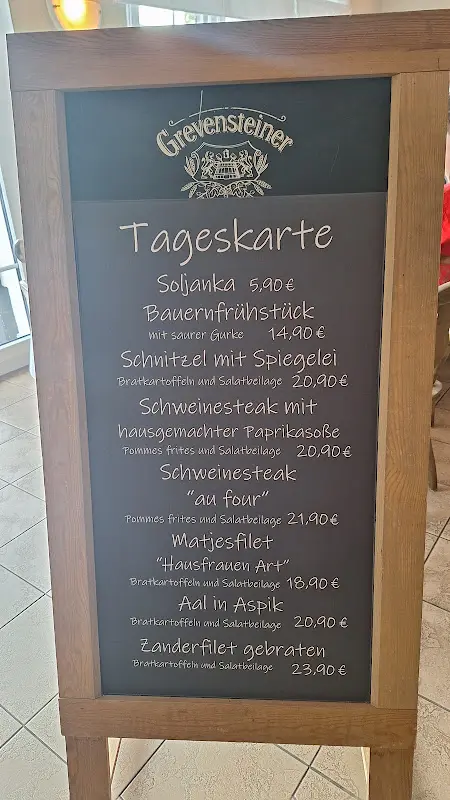 Grevensteiner
Tageskarte
Soljanka 5,90 €
Bauernfrühstück
mit saurer Gurke 14,90 €
Schnitzel mit Spiegelei
Bratkartoffeln und Salatbeilage 20,90 €
Schweinesteak mit
hausgemachter Paprikasoße
Pommes frites und Salatbeilage 20,90 €
Schweinesteak
"au four"
Pommes frites und Salatbeilage 21,90 €
Matjesfilet
"Hausfrauen Art"
Bratkartoffeln und Salatbeilage 18,90 €
Aal in Aspik
Bratkartoffeln und Salatbeilage 20,90 €
Zanderfilet gebraten
Bratkartoffeln und Salatbeilage 23,90 €